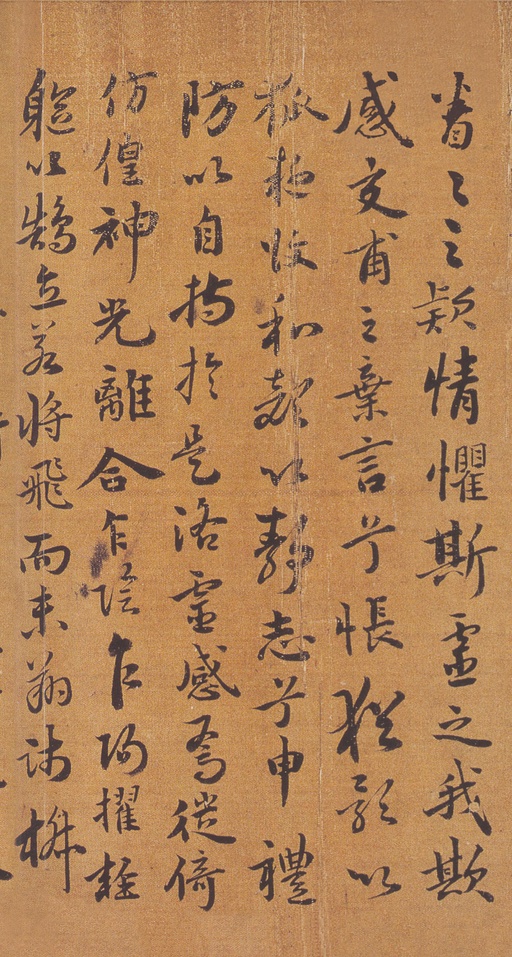 眷々之款情懼斯靈之我欺
感交甫之棄言兮悵猶豫以
狐疑收和顏以静志兮申禮
防以自持於是洛靈感焉徙倚
仿偟神光離合乍陰乍陽擢輕
軀以鶴立若將飛而未翔踐椒